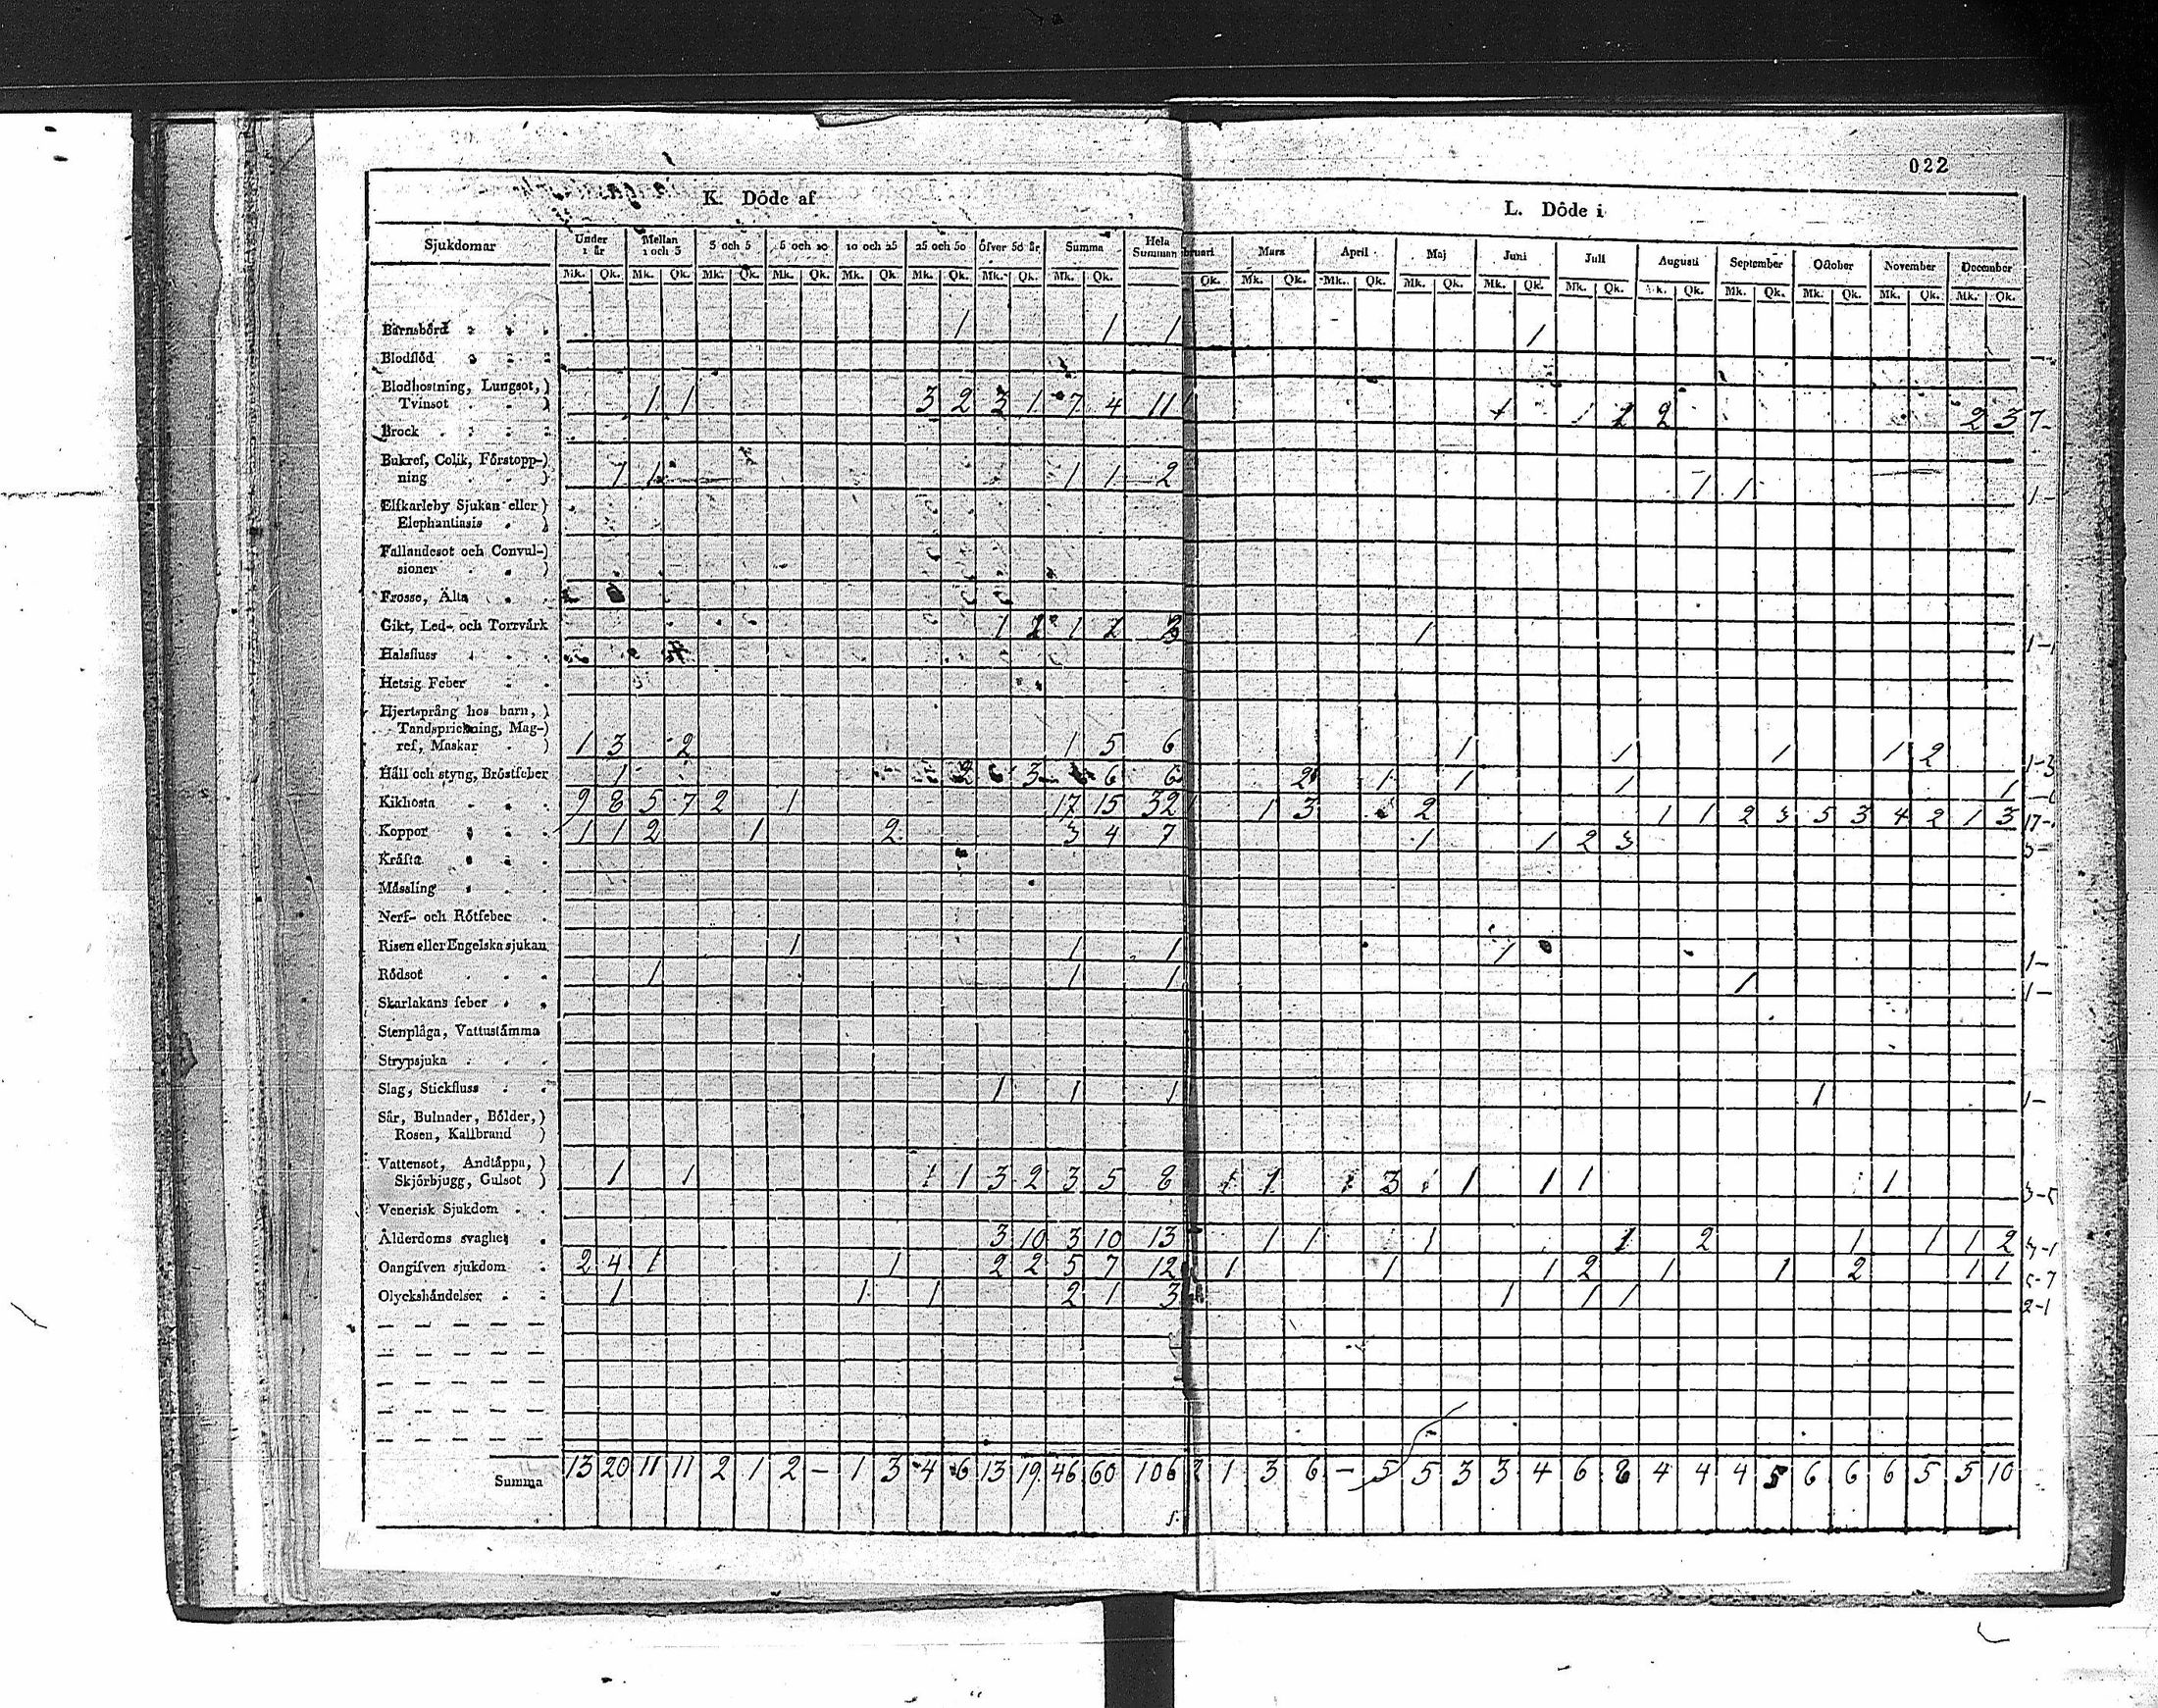 022
K. Döde af
L. Döde i
Sjukdomar Under 1 år Mellan 1 och 3 3 och 5 5 och 10 10 och 25 25 och 50 öfver 50 år Summa Hela Summan
bruari Mars April Maj Juni Juli Augusti September October November December
Mk. Qk. Mk. Qk. Mk. Qk. Mk. Qk. Mk. Qk. Mk. Qk. Mk. Qk. Mk. Qk.
Qk. Mk. Qk. Mk. Qk. Mk. Qk. Mk. Qk. Mk. Qk. Mk. Qk. Mk. Qk. Mk. Qk. Mk. Qk. Mk. Qk.
Barnsbörd 1 1 1 1
Blodflöd
Blodhostning, Lungsot,
Tvinsot 1 1 3 2 3 1 7 4 11 1 1 2 2 2 3 7-
Brock
Bukref, Colik, Förstopp-
ning 1 1 1 1 2 1 1 1-
Elfkarleby Sjukan eller
Elephantiasis
Fallandesot och Convul-
sioner
Frosse, Älta
Gikt, Led- och Torrvärk 1 2 1 2 3 1
Halsfluss
Hetsig Feber
Hjertsprång hos barn,
Tandsprickning, Mag-
ref, Maskar 1 3 2 1 5 6 1 1 1 1 2
Håll och styng, Bröstfeber 1 2 3 6 6 2 1 1 1 1
Kikhosta 9 8 5 7 2 1 17 15 32 1 3 2 1 1 2 3 5 3 4 2 1 3 17-
Koppor 1 1 2 1 2 3 4 7 1 1 2 3
Kräfta
Mässling
Nerf- och Rötfeber
Risen eller Engelska sjukan 1 1 1 1 1-
Rödsot 1 1 1 1 1-
Skarlakans feber
Stenplåga, Vattustämma
Strypsjuka
Slag, Stickfluss 1 1 1 1 1-
Sår, Bulnader, Bölder,
Rosen, Kallbrand
Vattensot, Andtäppa,
Skjörbjugg, Gulsot 1 1 1 1 3 2 3 5 8 1 1 1 3 1 1 1 1 1 3-5
Venerisk Sjukdom
Ålderdoms svaghet 3 10 3 10 13 1 1 1 1 2 1 1 1 2
Oangifven sjukdom 2 4 1 1 2 2 5 7 12 1 1 1 2 1 1 2 1 1 5-7
Olyckshändelser 1 1 1 2 1 3 1 1 1 2-1
Summa 13 20 11 11 2 1 2 — 1 3 4 6 13 19 46 60 106 2 1 3 6 — 5 5 3 3 4 6 8 4 4 4 5 6 6 6 5 5 10